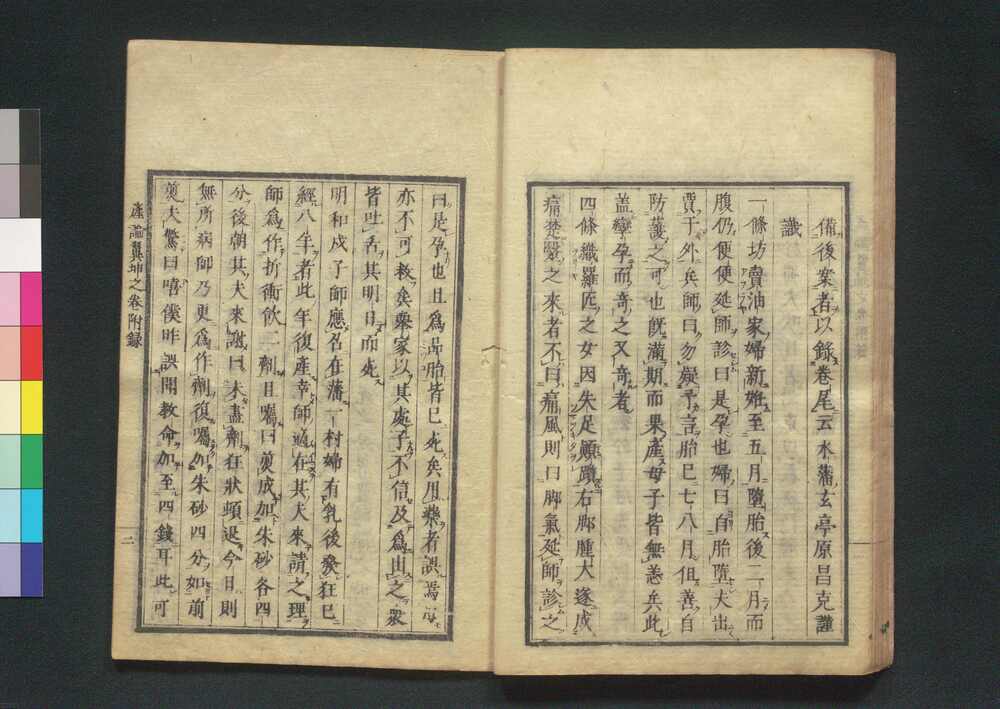 備後案者以錄卷尾云水藩玄亭原昌克謹
識
一條坊賣油家婦新娠至五月墮胎後二月而
腹仍便便延師診曰是孕也婦曰自胎墮夫出
賈于外矣師曰勿疑予言胎已七八月但善自
防護之可也既滿期而果產母子皆無恙矣此
蓋孿孕而奇之又奇者
四條織羅匠之女因失足顛躓右脚腫大遂成
痛楚醫之來者不曰痛風則曰脚氣延師診之
曰是孕也且為品胎皆已死矣用藥者誤焉母
亦不可救矣舉家以其處子不信及為由之眾
皆吐舌其明日而死
明和戊子師應召在藩一村婦有乳後發狂已
經八年者此年復產幸師適在其夫來請之理
師為作折衝飲二劑且囑曰煎成加朱砂各四
分後朝其夫來謝曰未盡劑狂狀頓退今日則
無所病師乃更為作劑復囑加朱砂四分如前
煎夫驚曰嘻僕昨誤聞教命加至四錢耳此可
產論翼坤之卷附錄
二